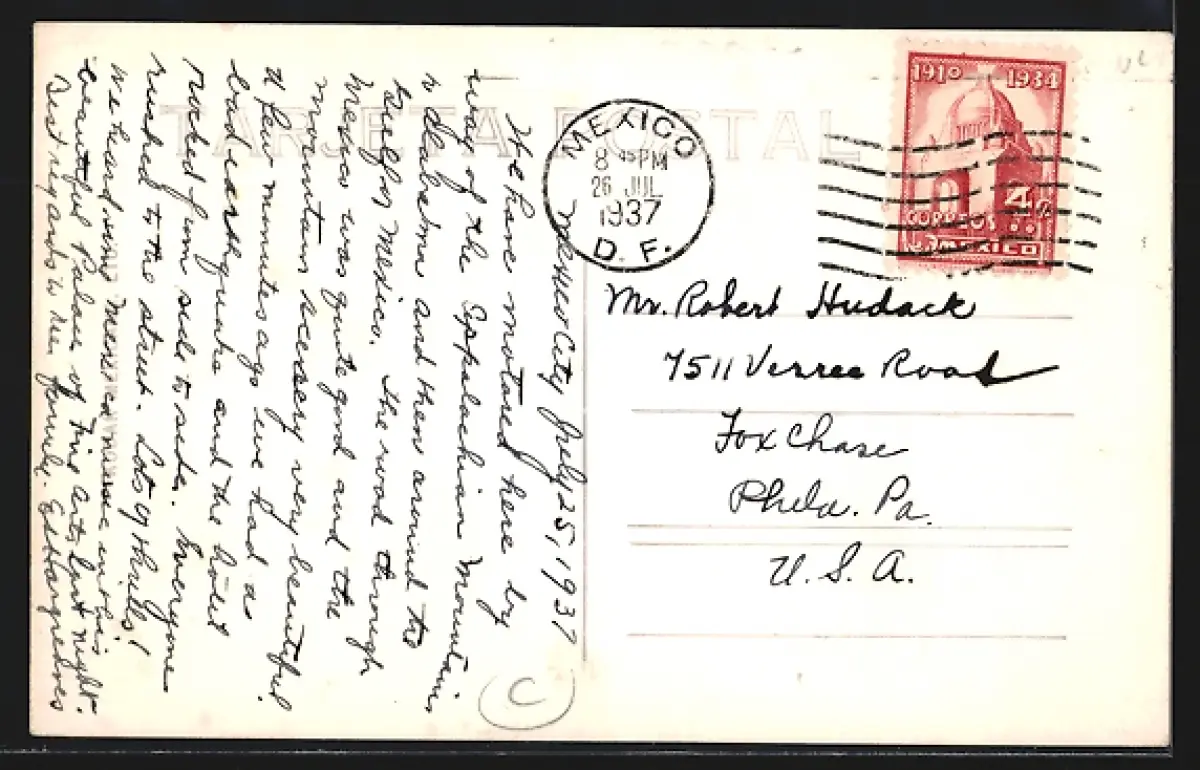 TARJETA POSTAL
Mexico City July 25, 1937
We have motored here by
way of the Appalachian Mountains
& Alabama and then around the
Gulf of Mexico. The road through
Mexico was quite good and the
mountain scenery very beautiful.
A few minutes ago we had a
bad earthquake and the hotel
rocked from side to side. Everyone
rushed to the street. Lots of thrills!
We heard some Mexican music in this
beautiful Palace of Fine Arts last night.
Best regards to the family. Ed Hargreaves
MEXICO
8 45 PM
26 JUL
1937
D. F.
1910 1934
4 ¢
CORREOS
MEXICO
Mr. Robert Hudack
7511 Verree Road
Fox Chase
Phila. Pa.
U. S. A.
C